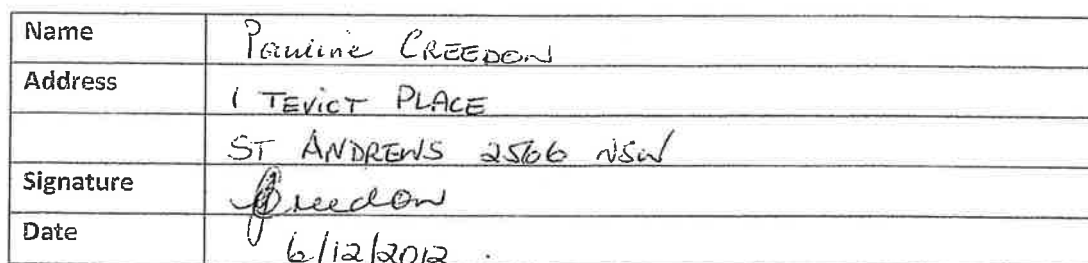 Name Pauline CREEDON
Address 1 TEVICT PLACE
ST ANDREWS 2566 NSW
Signature Creedon
Date 6/12/2012